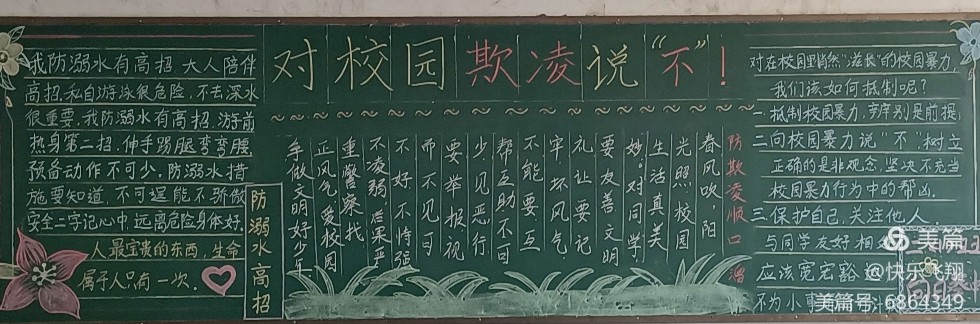 对校园欺凌说“不”!
我防溺水有高招 大人陪伴
高招.私自游泳很危险,不去深水
很重要.我防溺水有高招.游前
热身第二招.伸手踢腿弯弯腰
预备动作不可少.防溺水措
施要知道,不可逞能不骄傲
安全二字记心中.远离危险身体好.
人最宝贵的东西,生命
属于人只有一次.
防溺水高招
防欺凌顺口溜
春风吹 阳
光照校园
生活真美
妙.对同学
要友善文明
礼让要记
牢.坏风气
不能要 互
帮互助不可
少.见恶行
要举报 视
而不见可
不好.不恃强
不凌弱 后果严
重警察找
正风气 爱校园
争做文明好少年
对在校园里悄然“滋长”的校园暴力,
我们该如何抵制呢?
一.抵制校园暴力,辨别是前提
二向校园暴力说“不”,树立
正确的是非观念,坚决不充当
校园暴力行为中的帮凶.
三.保护自己,关注他人.
与同学友好相处
应该宽宏豁达
不为小事
美篇
@快乐飞翔
美篇号:6864349